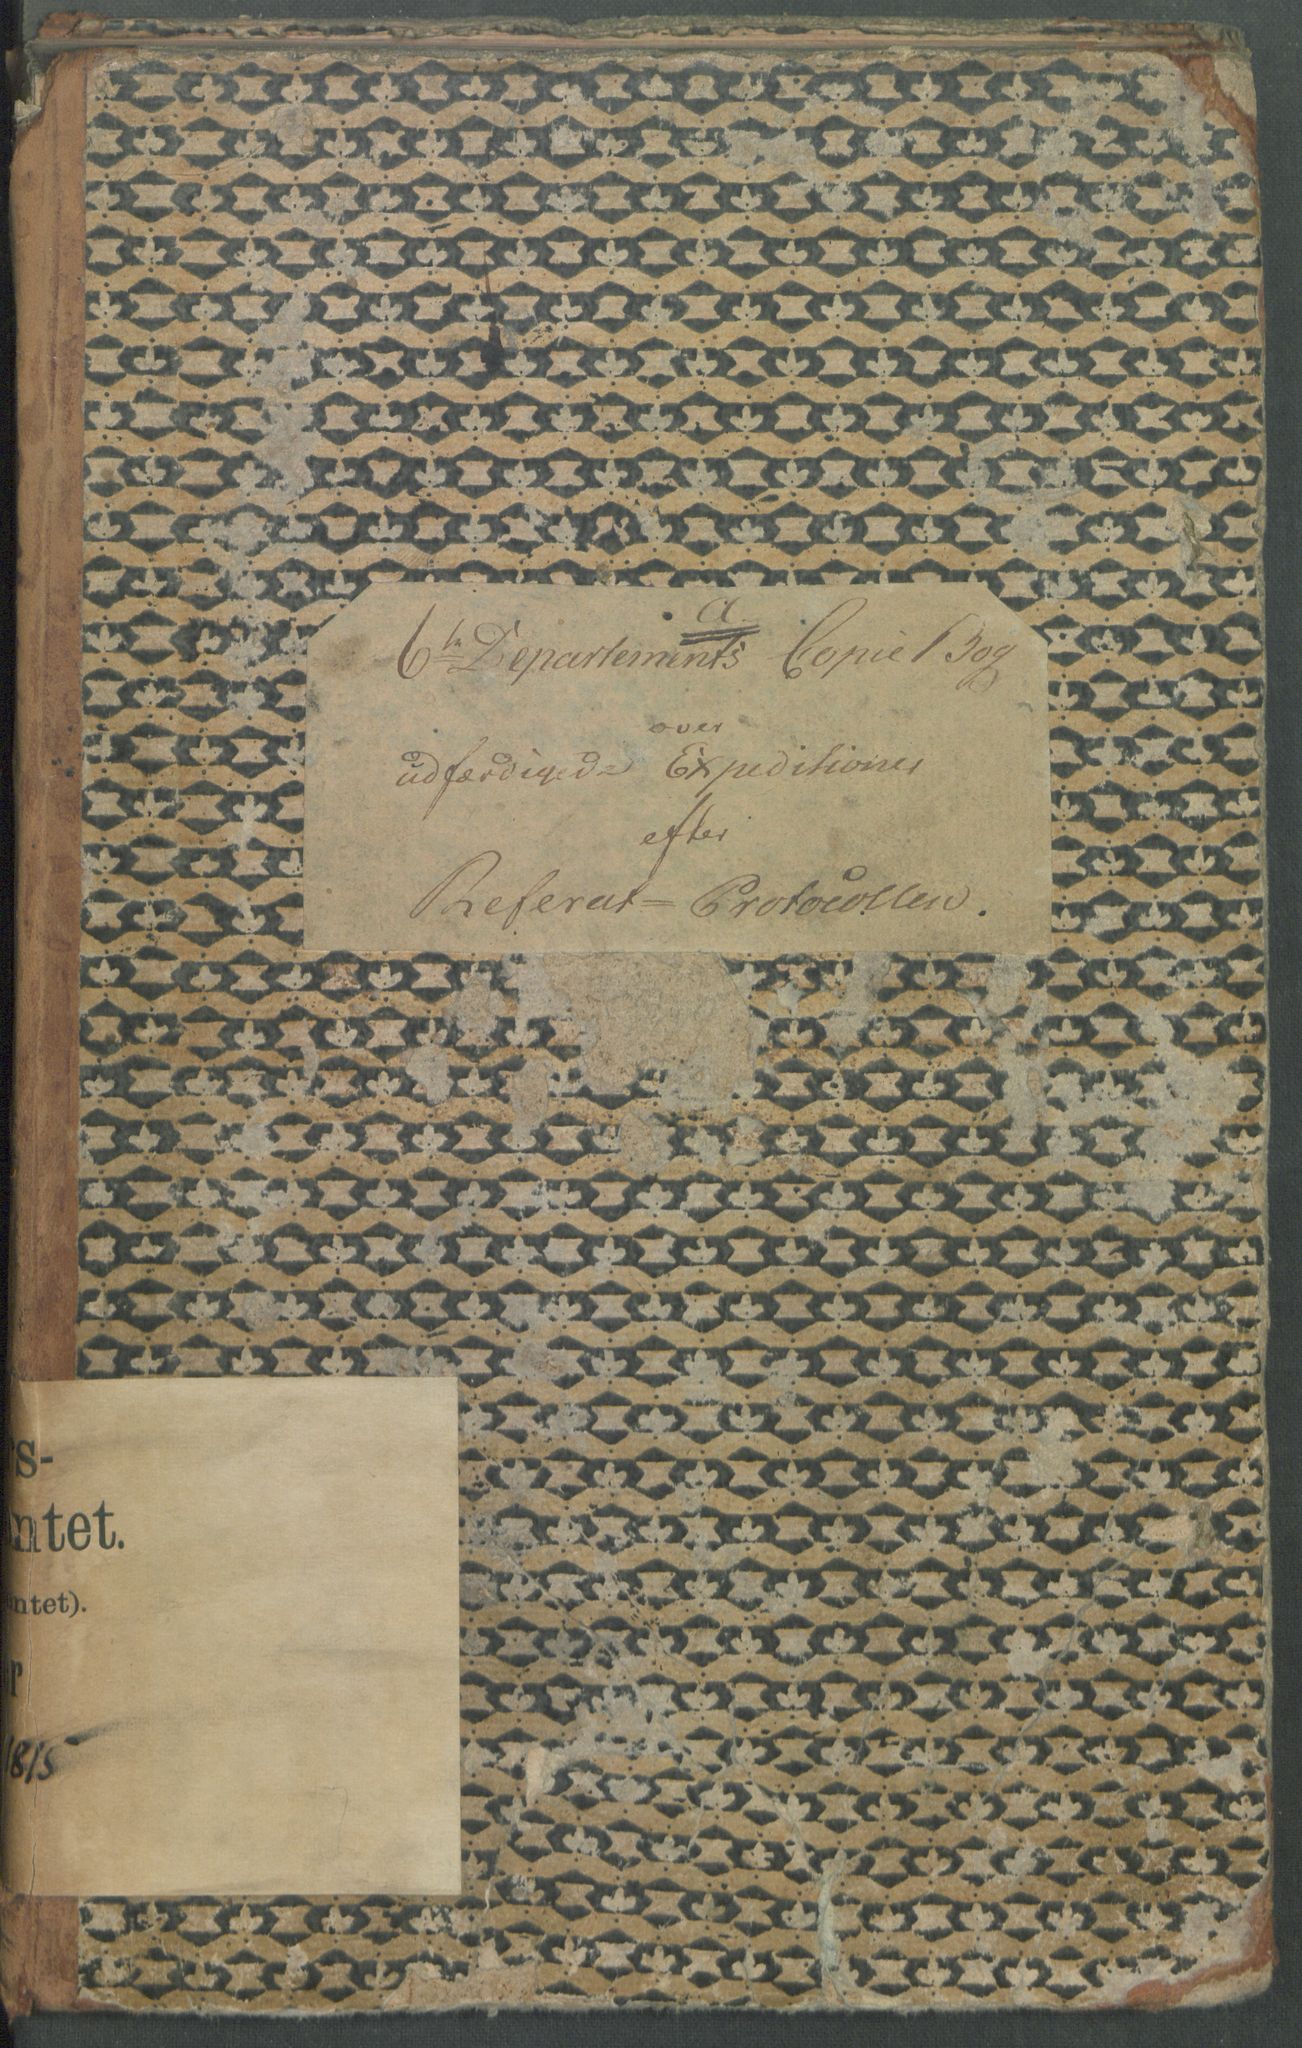 a
6te Departements Copie Bog
over
udfærdigede Expeditioner
efter
Referat=Protocollen.
rs-
ntet.
ntet).
r
1815